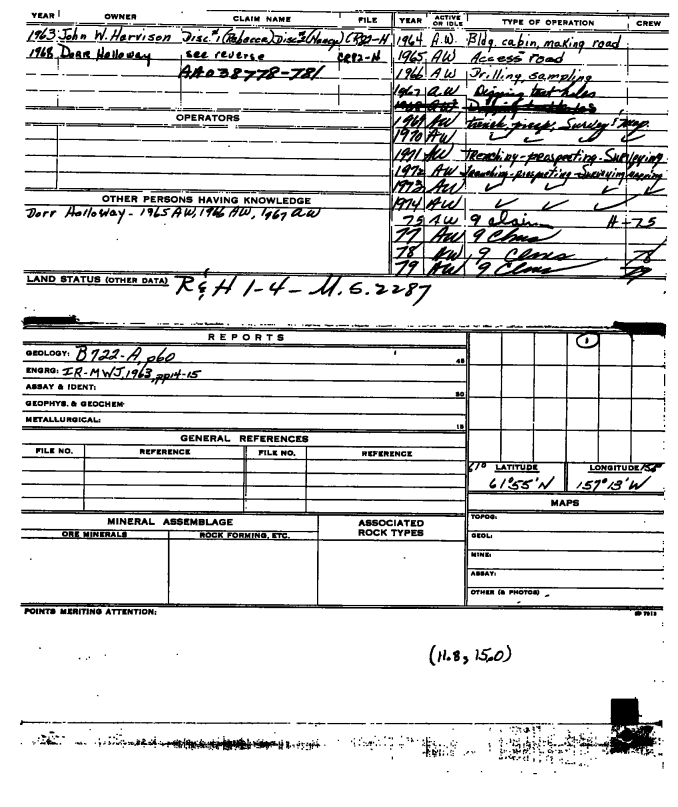 YEAR OWNER CLAIM NAME FILE
1963 John W. Harvison Disc #1 (Rebecca) Disc #2 (Nancy) CR82-H
1968 Dorr Holloway see reverse CR82-H
AA038778-781
OPERATORS
OTHER PERSONS HAVING KNOWLEDGE
Dorr Holloway - 1965 AW, 1966 AW, 1967 aw
YEAR ACTIVE OR IDLE TYPE OF OPERATION CREW
1964 A.W. Bldg. cabin, making road
1965 AW Access road
1966 AW Drilling, sampling
1967 a.w Digging test holes
1968 AW
1969 AW trench, Survey & map.
1970 AW ✓ ✓ ✓ ✓
1971 AW Trenching-prospecting-Surveying
1972 AW Trenching-prospecting-Surveying mapping
1973 AW ✓ ✓ ✓ ✓
1974 AW ✓ ✓ ✓
75 AW 9 claim H-75
77 AW 9 Clms
78 AW 9 Clms 78
79 AW 9 Clms 79
LAND STATUS (OTHER DATA) R&H 1-4 - M.S. 2287
REPORTS
GEOLOGY: B722-A, p60 45
ENGRG: IR-MWJ, 1963, pp14-15
ASSAY & IDENT: 30
GEOPHYS. & GEOCHEM
METALLURGICAL: 15
GENERAL REFERENCES
FILE NO. REFERENCE FILE NO. REFERENCE
MINERAL ASSEMBLAGE
ORE MINERALS ROCK FORMING, ETC.
ASSOCIATED ROCK TYPES
1
61° LATITUDE LONGITUDE 156°
61°55'N 157°13'W
MAPS
TOPOG:
GEOL:
MINE:
ASSAY:
OTHER (& PHOTOS)
POINTS MERITING ATTENTION:
(11.8, 15.0)